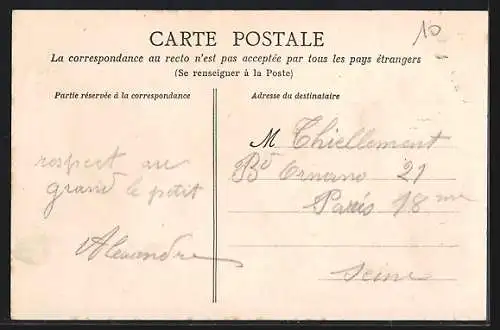 10
CARTE POSTALE
La correspondance au recto n'est pas acceptée par tous les pays étrangers
(Se renseigner à la Poste)
Partie réservée à la correspondance
Adresse du destinataire
respect au
grand le petit
Alexandre
M Thiellement
Bd Ornano 21
Paris 18me
Seine